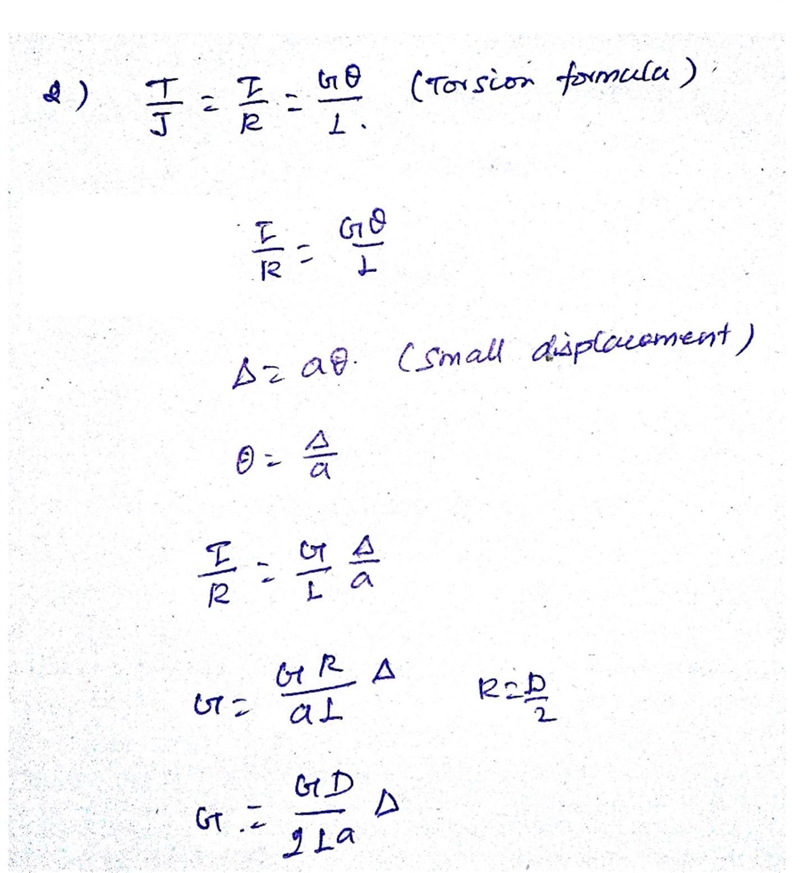 2) T/J = τ/R = Gθ/L. (Torsion formula)
τ/R = Gθ/L
Δ = aθ. (Small displacement)
θ = Δ/a
τ/R = G/L Δ/a
G = GR/aL Δ R = D/2
G = GD/2La Δ